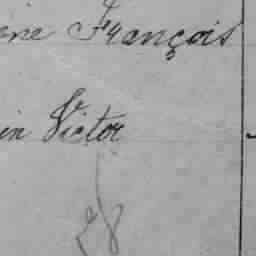 ène François
in Victor
28